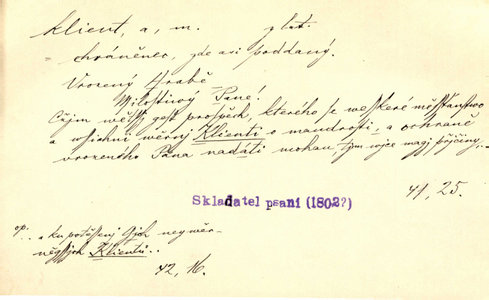 klient, a, m. z lat.
= chráněnec, zde asi poddaný.
Vrozený Hrabě
Milostivý Pane!
Čjm wětssj gest prospěch, kterého se wesskeré měssťanstwo
a wssichni wěrnj Klienti o maudrosti, a ochraně
vrozeného Pána nadáti mohau, tjm wjce magj přjčiny,..
41, 25.
Skladatel psaní (1802?)
op. .. ku potěssenj Gjch neywěr-
něgssjch Klientů...
42, 16.